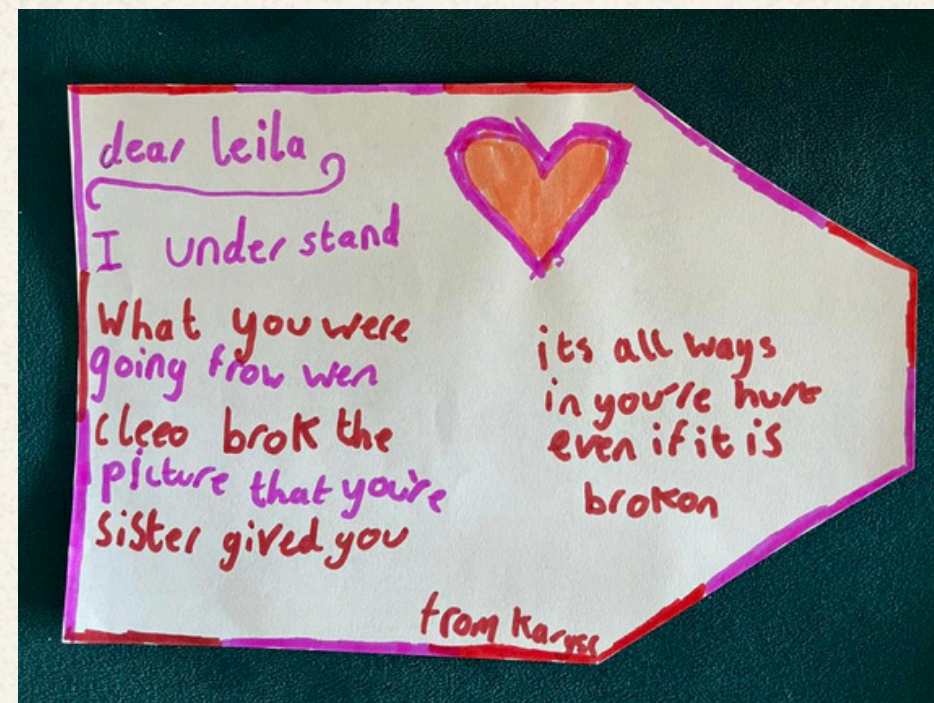 dear leila
I understand
What you were
going frow wen
cleeo brok the
picture that you're
sister gived you
its all ways
in you're hurt
even if it is
brokon
from Karyss